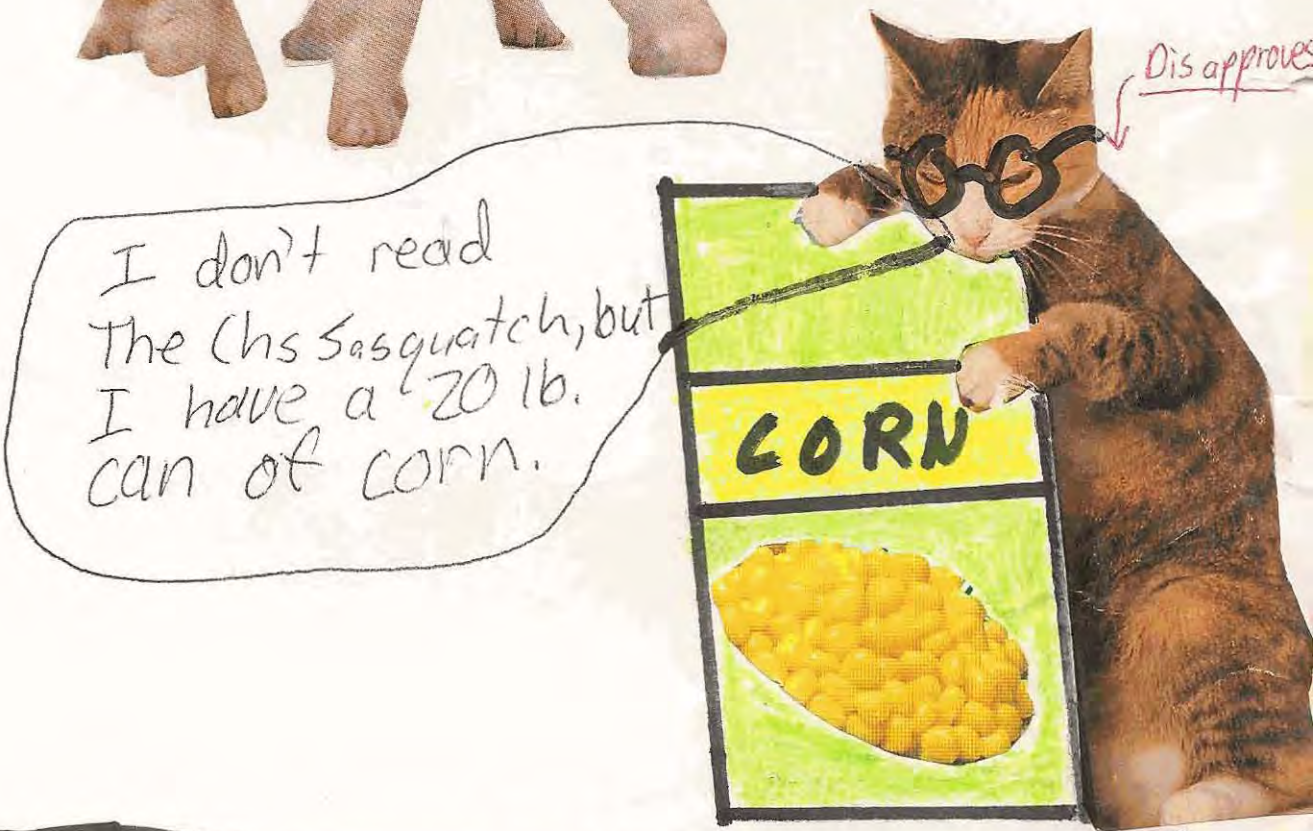 Disapproves
I don't read
The Chs Sasquatch, but
I have a 20 lb.
can of corn.
CORN